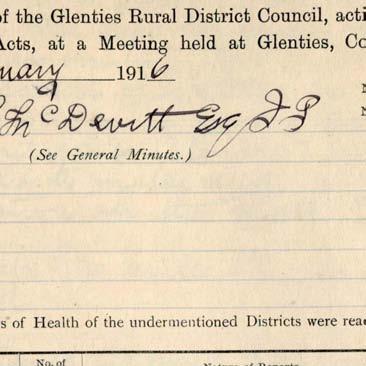 of the Glenties Rural District Council, acti
Acts, at a Meeting held at Glenties, Co
nuary 1916
McDevitt Esq J P
(See General Minutes.)
s of Health of the undermentioned Districts were read
No. of
Nature of Reports